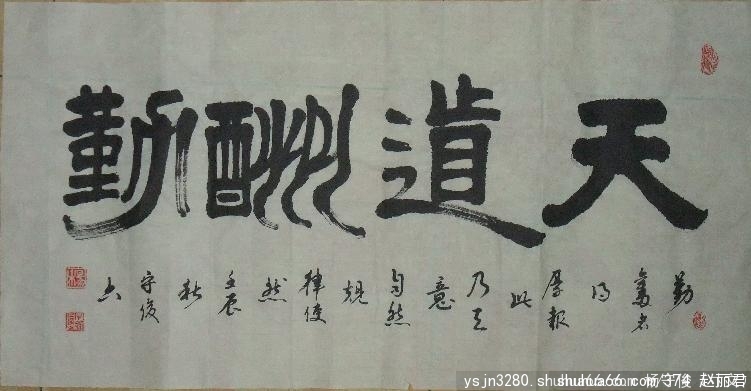 天道酬勤
勤
奮者
得
厚報
此
乃天
意
自然
規
律使
然
壬辰
秋
守俊
ysjn3280.shuhua66.com 杨守俊 赵丽君